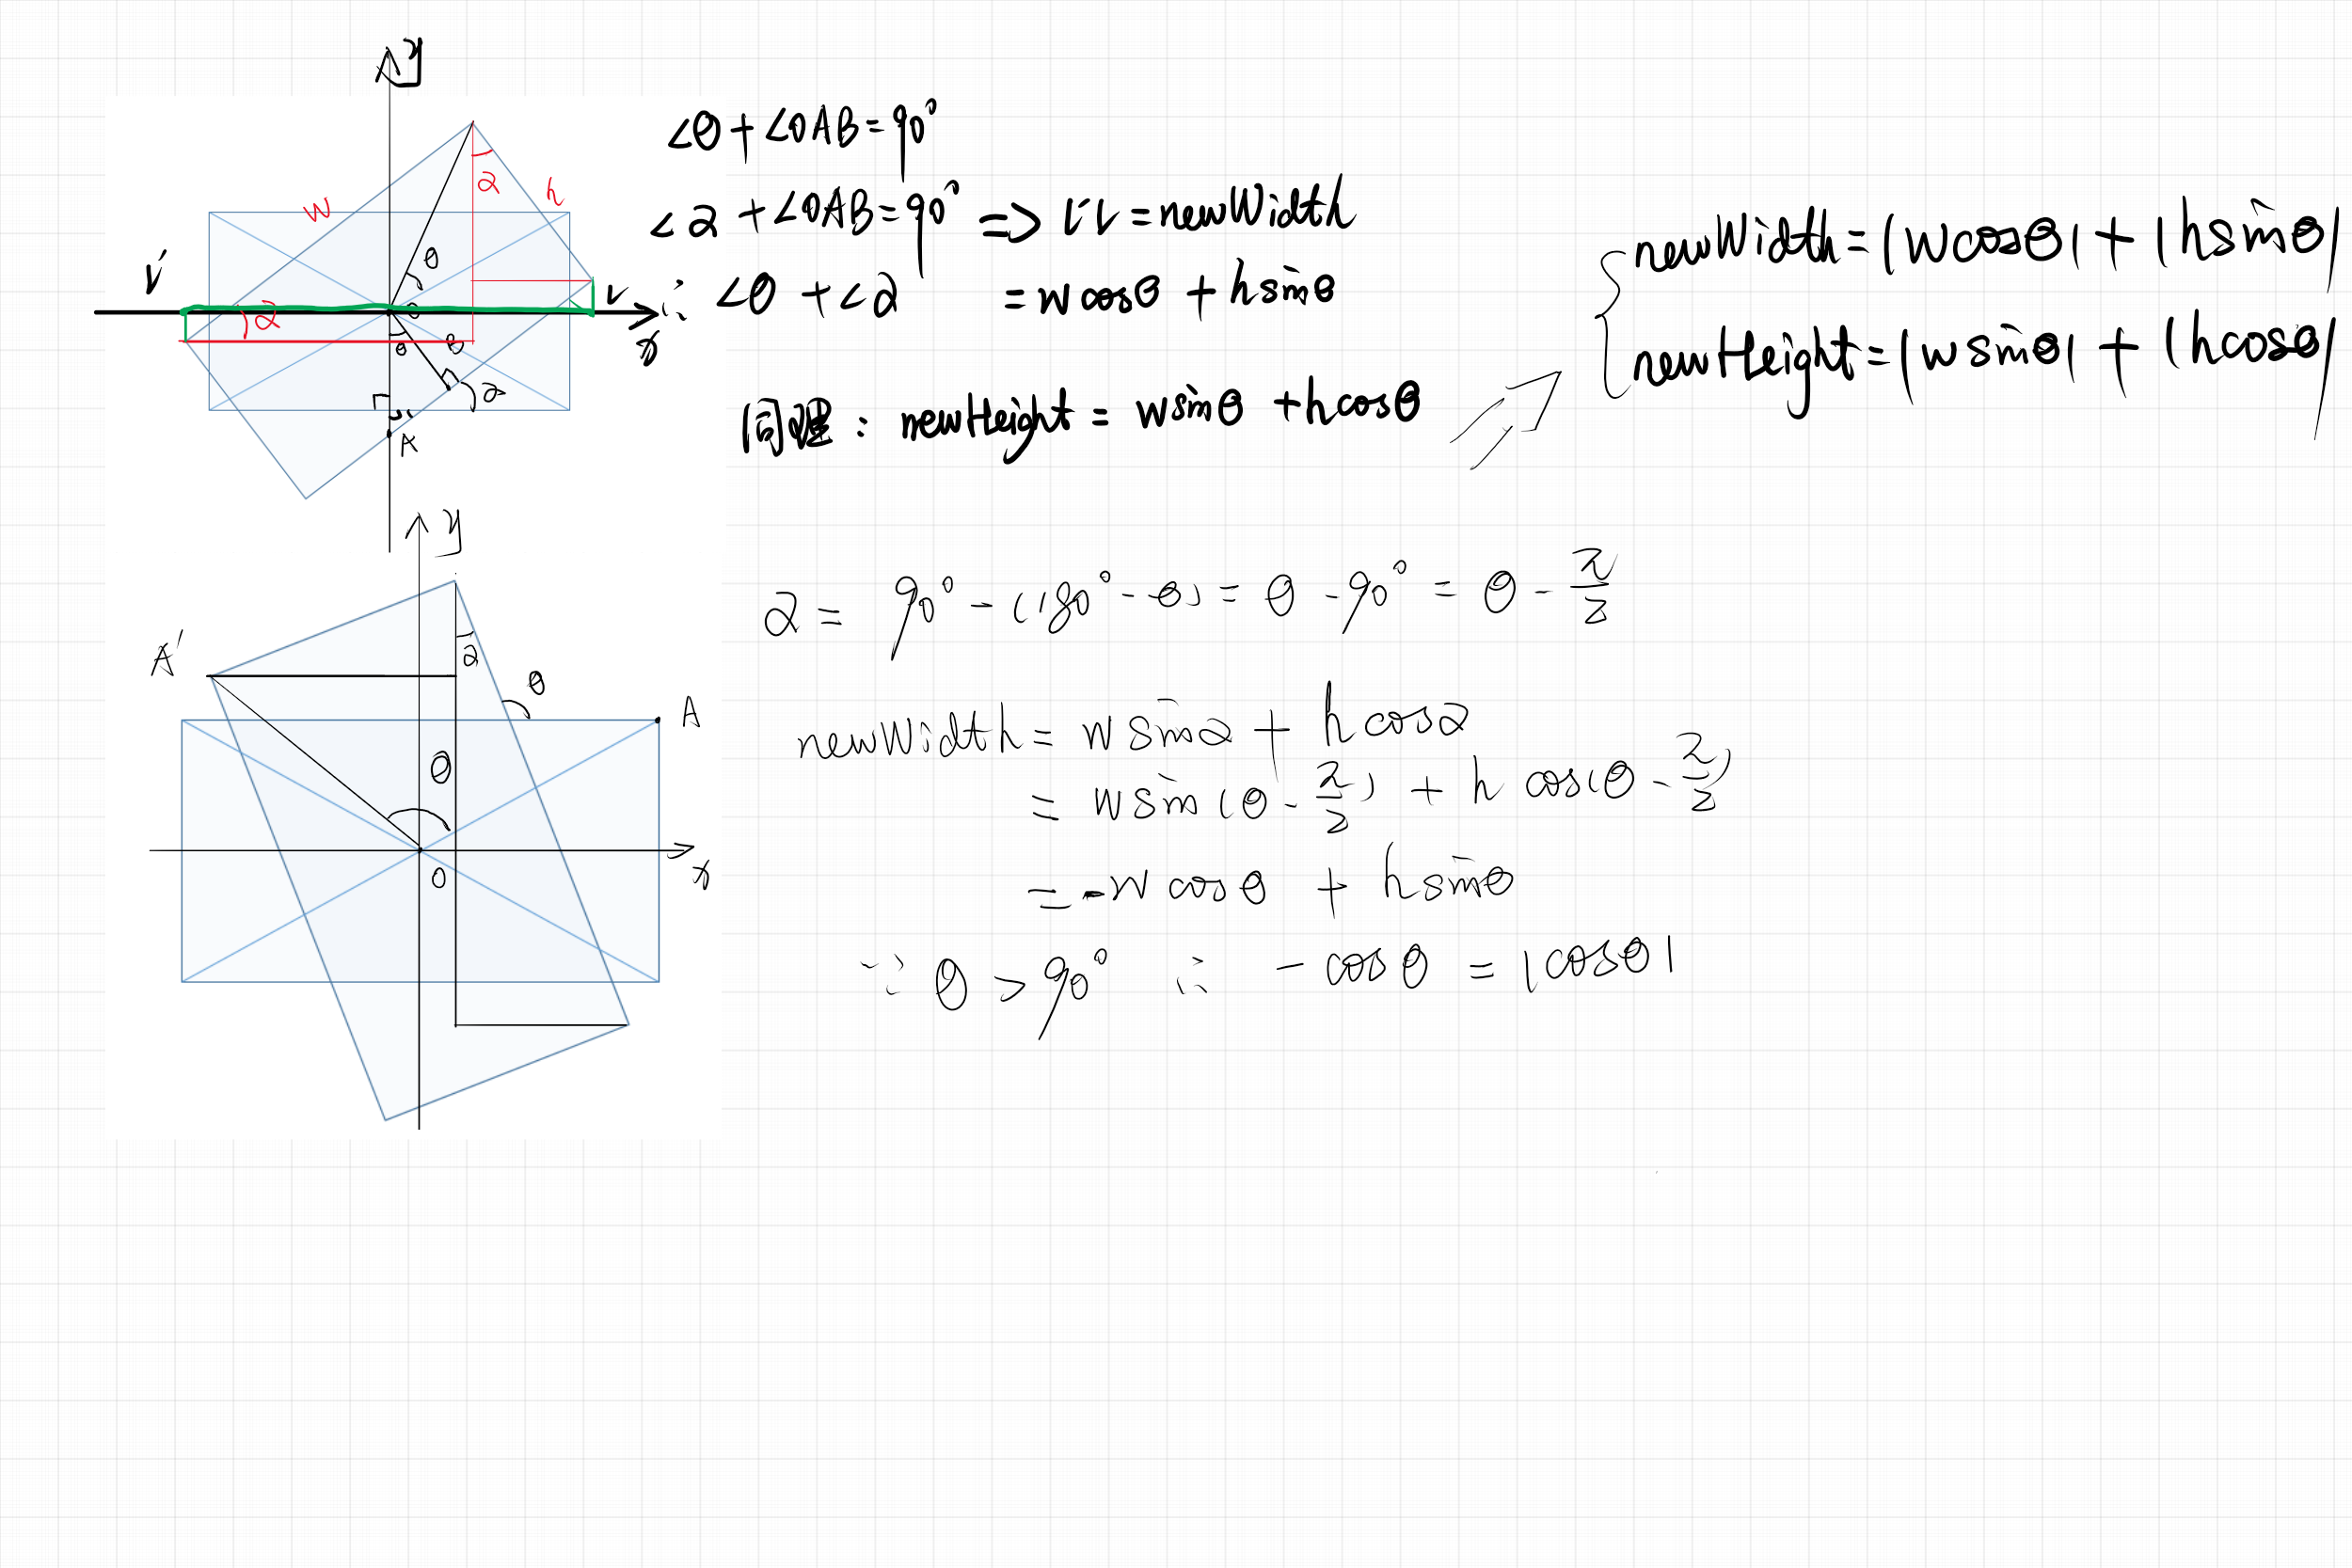 y
w
2
h
θ
V'
2
V
x
θ
θ
2
A
∠θ+∠OAB=90°
∠2+∠OAB=90° => V'V=newWidth
∴ ∠θ+∠2 =wcosθ+hsinθ
同理: newHeight=wsinθ+hcosθ
newWidth=|wcosθ|+|hsinθ|
newHeight=|wsinθ|+|hcosθ|
y
A'
2
θ
A
θ
x
O
2=90°-(180°-θ)=θ-90°=θ-π/2
newWidth=wsin2+hcos2
=wsin(θ-π/2)+hcos(θ-π/2)
=-wcosθ+hsinθ
∵θ>90° ∴ -cosθ=|cosθ|